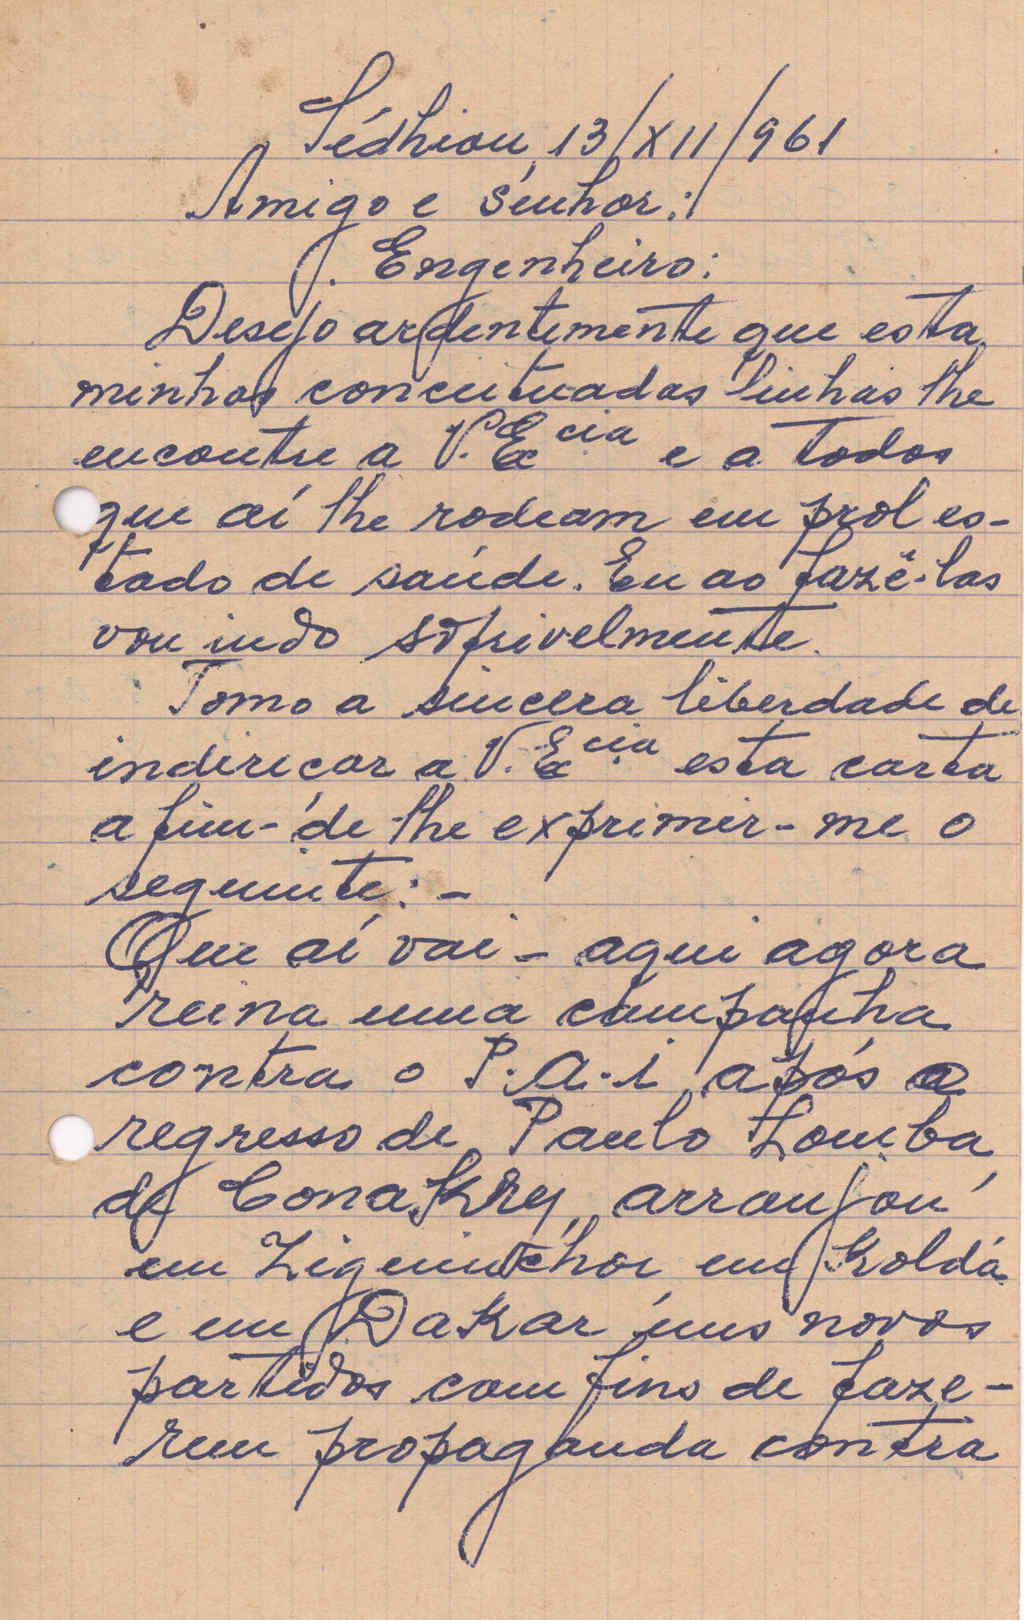 Sédhiou, 13/XII/961
Amigo e Senhor:
Engenheiro:
Desejo ardentemente que esta
minhas conceituadas linhas lhe
encontre a V. Ex.cia e a todos
que aí lhe rodeam em prol es-
tado de saúde. Eu ao fazê-las
vou indo sofrivelmente.
Tomo a sincera liberdade de
indereçar a V. Ex.cia esta carta
a fim-de-lhe exprimir-me o
seguinte: -
Que aí vai - aqui agora
reina uma campanha
contra o P.A.I após o
regresso de Paulo Lomba
de Conakry, arranjou
em Ziguinchor em Koldá
e em Dakar uns novos
partidos com fins de faze-
rem propaganda contra